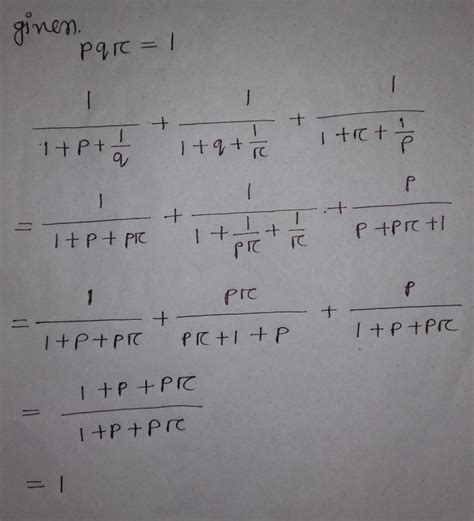 given.
pqr = 1
1/(1+p+1/q) + 1/(1+q+1/r) + 1/(1+r+1/p)
= 1/(1+p+pr) + 1/(1+1/pr+1/r) + p/(p+pr+1)
= 1/(1+p+pr) + pr/(pr+1+p) + p/(1+p+pr)
= (1+p+pr)/(1+p+pr)
= 1